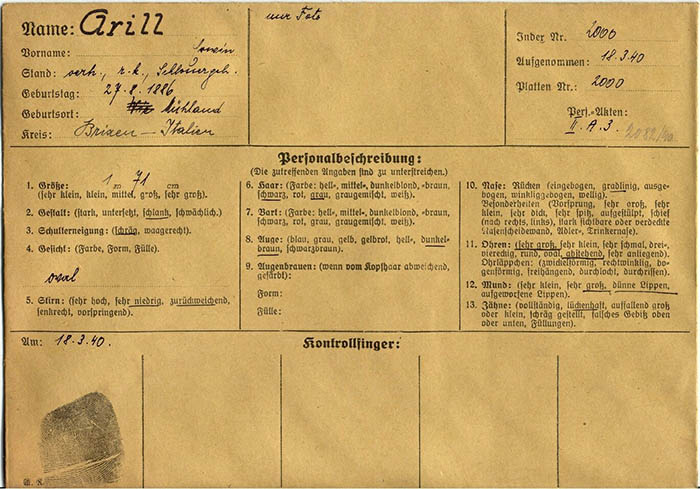 Name: Arill
nur Foto
Vorname: Erwin
Stand: verh., r.k.,
Geburtstag: 27.8.1886
Geburtsort: Mühland
Kreis: Brixen – Italien
Index Nr. 2000
Aufgenommen: 18.3.40
Platten Nr.: 2000
Pers.-Akten:
II. A. 3. 2082/40
Personalbeschreibung:
(Die zutreffenden Angaben sind zu unterstreichen.)
1. Größe: 1 m 71 cm
(sehr klein, klein, mittel, groß, sehr groß).
2. Gestalt: (stark, untersetzt, schlank, schwächlich.)
3. Schulterneigung: (schräg, waagerecht.)
4. Gesicht: (Farbe, Form, Fülle).
oval
5. Stirn: (sehr hoch, sehr niedrig, zurückweichend,
senkrecht, vorspringend).
6. Haar: (Farbe: hell-, mittel-, dunkelblond, -braun,
schwarz, rot, grau, graugemischt, weiß).
7. Bart: (Farbe: hell-, mittel-, dunkelblond, -braun,
schwarz, rot, grau, graugemischt, weiß).
8. Auge: (blau, grau, gelb, gelbrot, hell-, dunkel-
braun, schwarzbraun).
9. Augenbrauen: (wenn vom Kopfhaar abweichend,
gefärbt):
Form:
Fülle:
10. Nase: Rücken (eingebogen, gradlinig, ausge-
bogen, winkliggebogen, wellig).
Besonderheiten (Vorsprung, sehr groß, sehr
klein, sehr dick, sehr spitz, aufgestülpt, schief
(nach rechts, links), stark sichtbare oder verdeckte
Nasenscheidewand, Adler-, Trinkernase).
11. Ohren: (sehr groß, sehr klein, sehr schmal, drei-,
viereckig, rund, oval, abstehend, sehr anliegend).
Ohrläppchen: (zwickelförmig, rechtwinklig, bo-
genförmig, freihängend, durchlocht, durchrissen).
12. Mund: (sehr klein, sehr groß, dünne Lippen,
aufgeworfene Lippen).
13. Zähne: (vollständig, lückenhaft, auffallend groß
oder klein, schräg gestellt, falsches Gebiß oben
oder unten, Füllungen).
Am: 18.3.40.
Kontrollfinger: